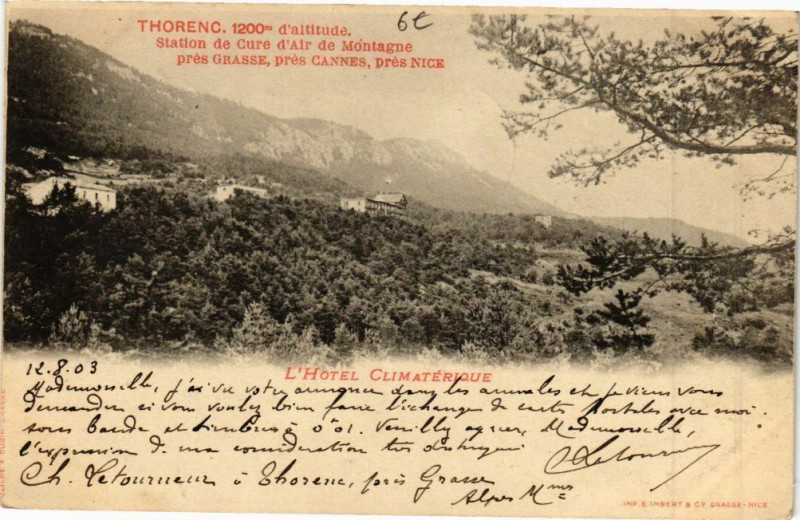 THORENC. 1200m d'altitude.
Station de Cure d'Air de Montagne
près GRASSE, près CANNES, près NICE
6€
L'HOTEL CLIMATÉRIQUE
12.8.03
Mademoiselle, j'ai vu votre annonce dans les annales et je viens vous
demander si vous voulez bien faire l'échange de cartes postales avec moi.
sous bande et timbres à 0f01. Veuillez agréer, Mademoiselle,
l'expression de ma considération très distinguée
CLetourneur
Ch. Letourneur à Thorenc, près Grasse
Alpes Mmes
IMP. E. IMBERT & Cie GRASSE - NICE